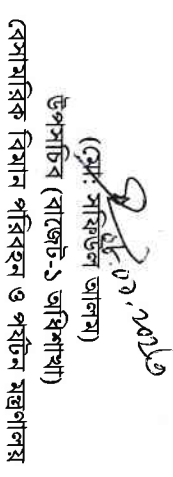 (মো: সফিউল আলম)
উপসচিব (বাজেট-১ অধিশাখা)
বেসামরিক বিমান পরিবহন ও পর্যটন মন্ত্রণালয়